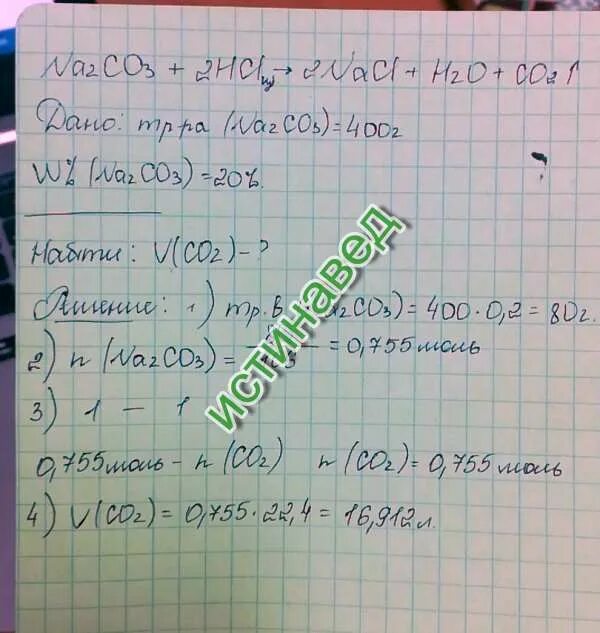 Na2CO3 + 2HCl → 2NaCl + H2O + CO2↑
Дано: mр.ра (Na2CO3) = 400г
W% (Na2CO3) = 20%.
Найти: V(CO2) - ?
Решение: 1) mр.в (Na2CO3) = 400 · 0,2 = 80г.
2) n (Na2CO3) = = 0,755 моль
3) 1 — 1
0,755 моль - n (CO2) n (CO2) = 0,755 моль
4) V(CO2) = 0,755 · 22,4 = 16,912 л.
истинавед